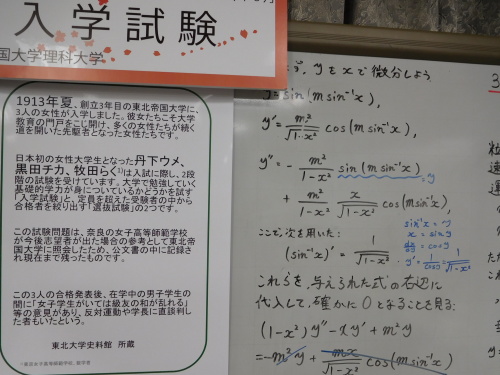 入学試験
国大学理科大学
1913年夏、創立3年目の東北帝国大学に、
3人の女性が入学しました。彼女たちこそ大学
教育の門戸をこじ開け、多くの女性たちが続く
道を開いた先駆者となった女性たちです。
日本初の女性大学生となった丹下ウメ、
黒田チカ、牧田らく¹⁾は入試に際し、2段
階の試験を受けています。大学で勉強していく
基礎的学力が身についているかどうかを試す
「入学試験」と、定員を超えた受験者の中から
合格者を絞り出す「選抜試験」の2つです。
この試験問題は、奈良の女子高等師範学校
が今後志望者が出た場合の参考として東北帝
国大学に照会したため、公文書の中に記録
され現在まで残ったものです。
この3人の合格発表後、在学中の男子学生の
間に「女子学生がいては級友の和が乱れる」
等の意見があり、反対運動や学長に直談判し
た者もいたという。
東北大学史料館 所蔵
yをxで微分しよう
y=sin(m sin⁻¹x),
y' = m/√(1-x²) cos(m sin⁻¹x),
y'' = - m²/(1-x²) sin(m sin⁻¹x) ~y
+ m/(1-x²) x/√(1-x²) cos(m sin⁻¹x),
ここで次を用いた:
(sin⁻¹x)' = 1/√(1-x²)
sin⁻¹x = y
x = sin y
= cos y
y' = 1/cos y = 1/√(1-x²)
これらを、与えられた式の左辺に
代入して、確かに0となることを見る:
(1-x²)y'' - xy' + m²y
= -m²y + mx/√(1-x²) cos(m sin⁻¹x)